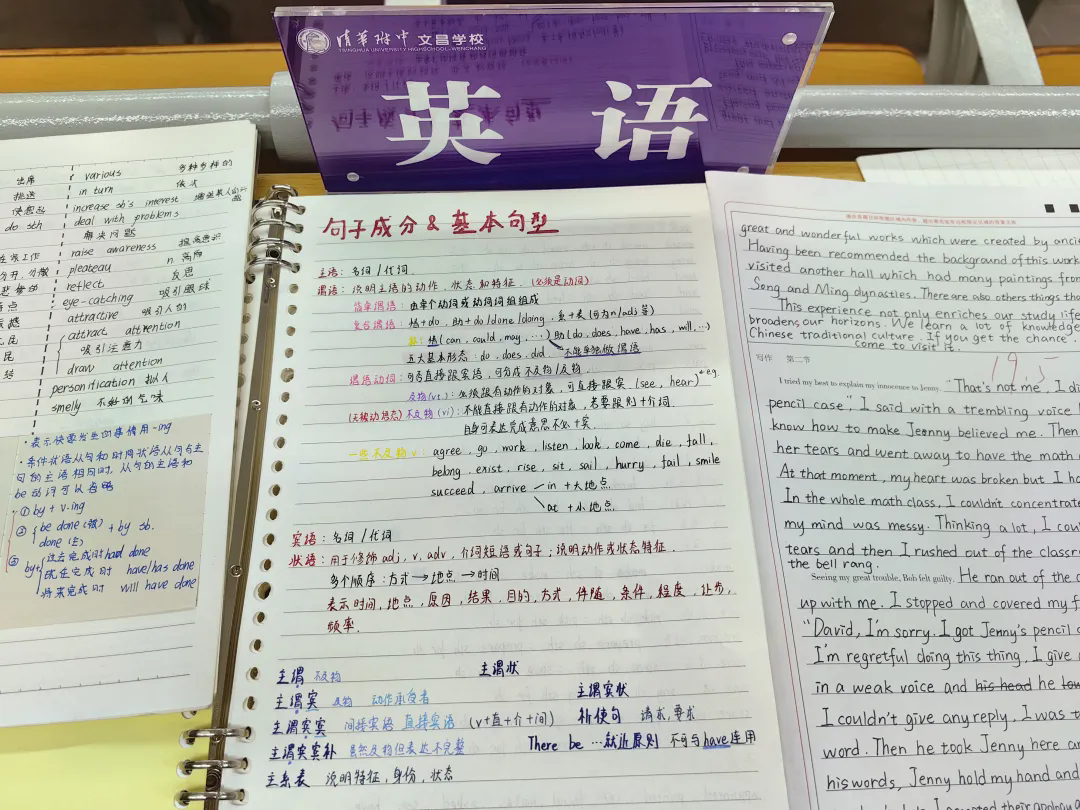 清华附中 文昌学校
TSINGHUA UNIVERSITY HIGH SCHOOL-WENCHANG
英 语
出席 various 多种多样的
挑选 in turn 依次
使想起 increase sb's interest
do sth deal with problems
解决问题
raise awareness 提高意识
plateau n 高原
reflect 反思
eye-catching 吸引眼球
attractive 吸引人的
attract attention
吸引注意力
draw attention
personification 拟人
smelly 不好的气味
·表示快要发生的事情用-ing
·条件状语从句和时间状语从句与主
句的主语相同时,从句的主语和
be动词可以省略
① by + v-ing
② be done (被) + by sb.
done (主)
③ by+ 过去完成时 had done
现在完成时 have/has done
将来完成时 will have done
句子成分 & 基本句型
主语: 名词 / 代词
谓语: 说明主语的动作、状态和特征 (必须是动词)
简单谓语: 由单个动词或动词词组组成
复合谓语: 情+do、助+do/done/doing、系+表(可为n/adj等)
情(can、could、may、...) 助(do、does、have、has、will、...)
五大基本形态: do、does、did 不能单独做谓语
谓语动词: 可否直接跟宾语,可分成不及物/及物.
及物(vt.): 必须跟有动作的对象,可直接跟宾 (see, hear) e.g.
(无被动语态) 不及物(vi): 不能直接跟有动作的对象,若要跟则+介词.
自身可表达完成意思不必+宾.
一些不及物v: agree, go, work, listen, look, come, die, fall,
belong, exist, rise, sit, sail, hurry, fail, smile
succeed, arrive in +大地点
at +小地点
宾语: 名词 / 代词
状语: 用于修饰adj、v、adv、介词短语或句子;说明动作或状态特征.
多个顺序: 方式→地点→时间
表示时间、地点、原因、结果、目的、方式、伴随、条件、程度、让步、
频率.
主谓 不及物 主谓状
主谓宾 及物 动作承受者 主谓宾状
主谓宾宾 间接宾语 直接宾语 (v+直+介+间) 祈使句 请求,要求
主谓宾宾补 虽然及物但表达不完整 There be ...就近原则 不可与have连用
主系表 说明特征,身份,状态
great and wonderful works which were created by
Having been recommended the background of this work
visited another hall which had many paintings from
Song and Ming dynasties. There are also others things
This experience not only enriches our study life
broadens our horizons. We learn a lot of knowledge
Chinese traditional culture. If you get the chance,
come to visit it.
写作 第二节
19.5
I tried my best to explain my innocence to Jenny. "That's not me, I
pencil case", I said with a trembling voice
know how to make Jeonny believed me. Then
her tears and went away to have the math
At that moment, my heart was broken but I
In the whole math class, I couldn't concentrate
my mind was messy. Thinking a lot, I
tears and then I rushed out of the
the bell rang.
Seeing my great trouble, Bob felt guilty. He ran out of the
up with me. I stopped and covered my
"David, I'm sorry. I got Jenny's pencil
I'm regretful doing this thing, I give
in a weak voice and his head he
I couldn't give any reply. I was
word. Then he took Jenny here
his words, Jenny hold my hand and